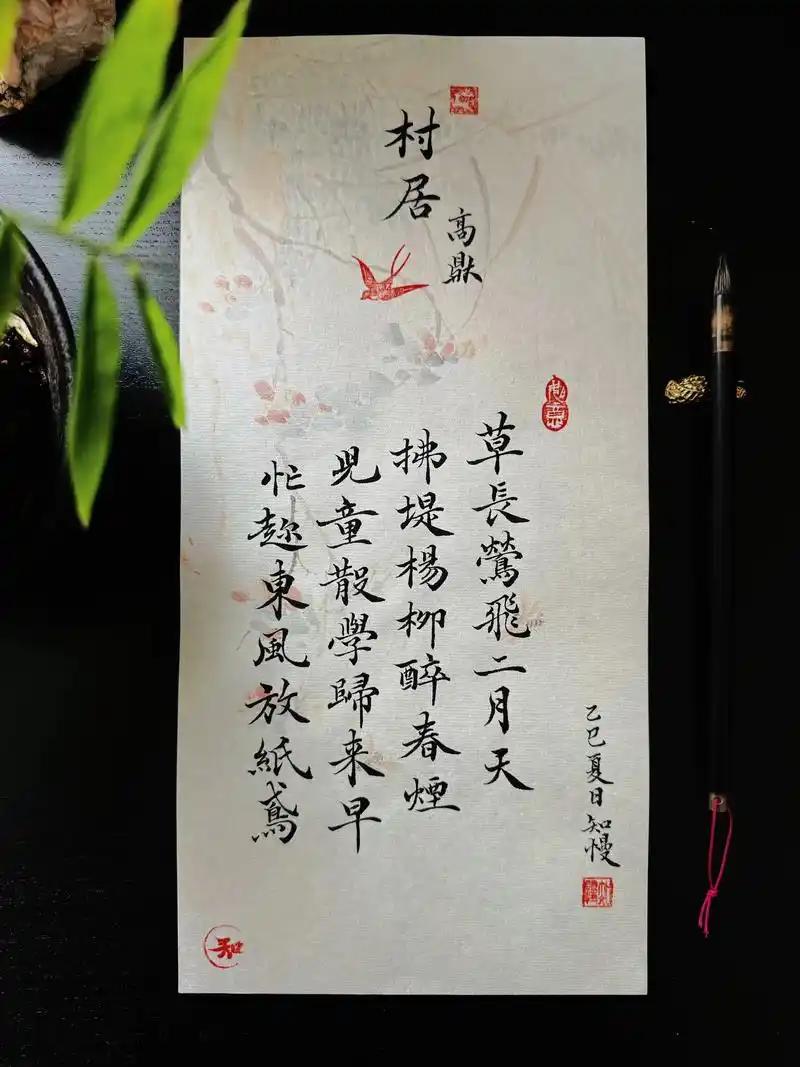 村居
高鼎
草長鶯飛二月天
拂堤楊柳醉春煙
兒童散學歸来早
忙趁東風放紙鳶
乙巳夏日知慢
知